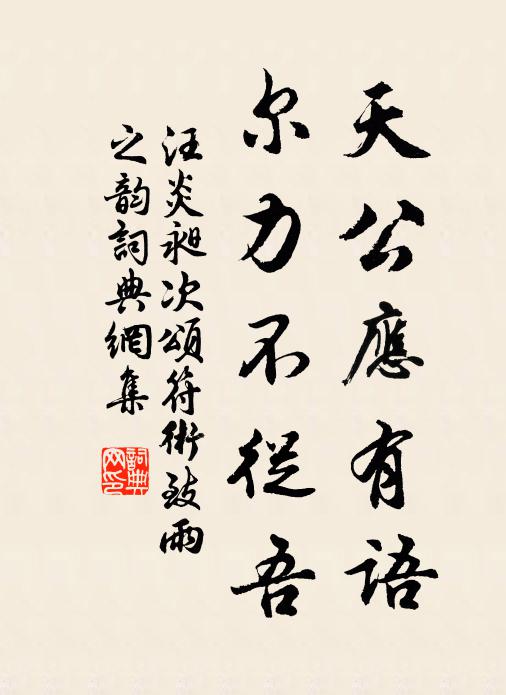 天公應有語
尔力不從吾
汪炎昶次頌符術致雨
之韵詞典網集
詞典网印